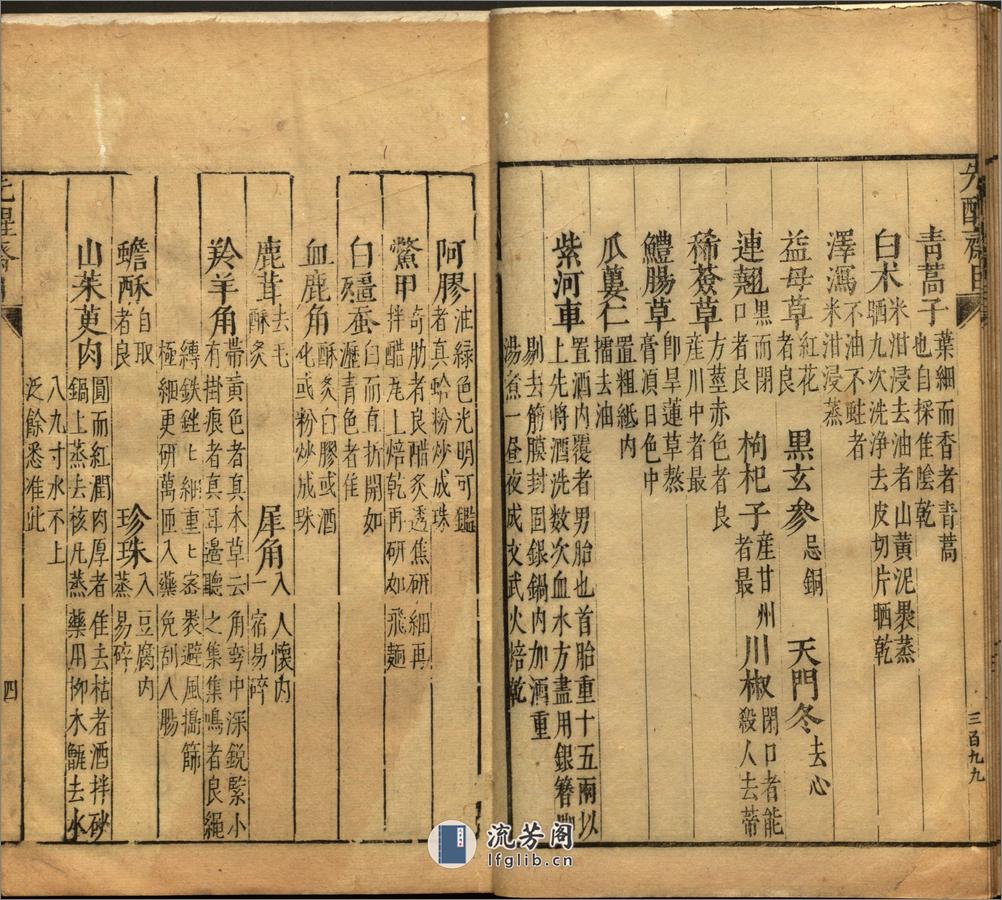 先醒齋
三百九九
青蒿子葉細而香者青蒿也自採佳陰乾
白朮米泔浸去油者山黃泥裹蒸晒九次洗净去皮切片晒乾
澤瀉不油不蛀者米泔浸蒸
益母草紅花者良 黑玄參忌銅 天門冬去心
連翹黑而閉口者良 枸杞子產甘州者最 川椒閉口者能殺人去蒂
豨薟草方莖赤色者良產川中者最
鱧腸草卽旱蓮草熬膏湏日色中
瓜蔞仁置粗紙內擂去油
紫河車置酒內覆者男胎也首胎重十五兩以上先將酒洗数次血水方盡用銀簪
剔去筋膜封固銀鍋內加酒重湯煮一晝夜成文武火焙乾
阿膠油綠色光明可鑑者真蛤粉炒成珠
鱉甲九肋者良醋炙透焦研細再拌醋瓦上焙乾再研如飛麵
白殭蚕白而直折開如瀝青色者佳
血鹿角酥炙白膠或酒化或粉炒成珠
鹿茸去毛酥炙 犀角入人懷內一宿易碎
羚羊角帶黃色者真本草云角弯中深鋭緊小有掛痕者真耳邊聽之集集鳴者良繩
縳鉄銼匕細重匕宻裹避風搗篩極細更研萬匝入藥免刮人腸
蟾酥自取者良 珍珠入豆腐內蒸易碎
山茱萸肉圓而紅潤肉厚者佳去枯者酒拌砂鍋上蒸去核凡蒸藥用柳木甑去水
八九寸水不上泛餘悉准此
先醒齋
四
流芳阁
lfglib.cn